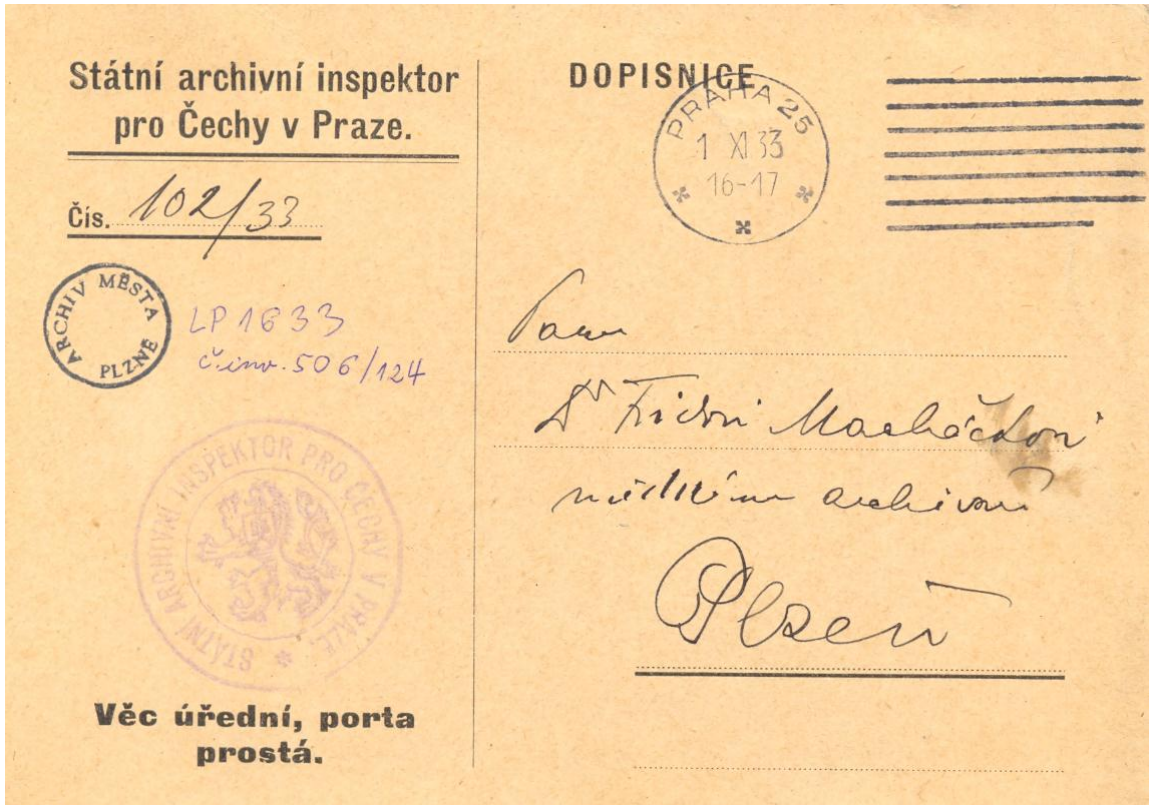 Státní archivní inspektor
pro Čechy v Praze.
Čís. 102/33
ARCHIV MĚSTA PLZNĚ
LP 1633
č. inv. 506/124
STÁTNÍ ARCHIVNÍ INSPEKTOR PRO ČECHY V PRAZE.
Věc úřední, porta
prostá.
DOPISNICE
PRAHA 25
1 XI 33
16-17
Panu
Dr Fridri Macháčkovi
archivaři
Plzeň